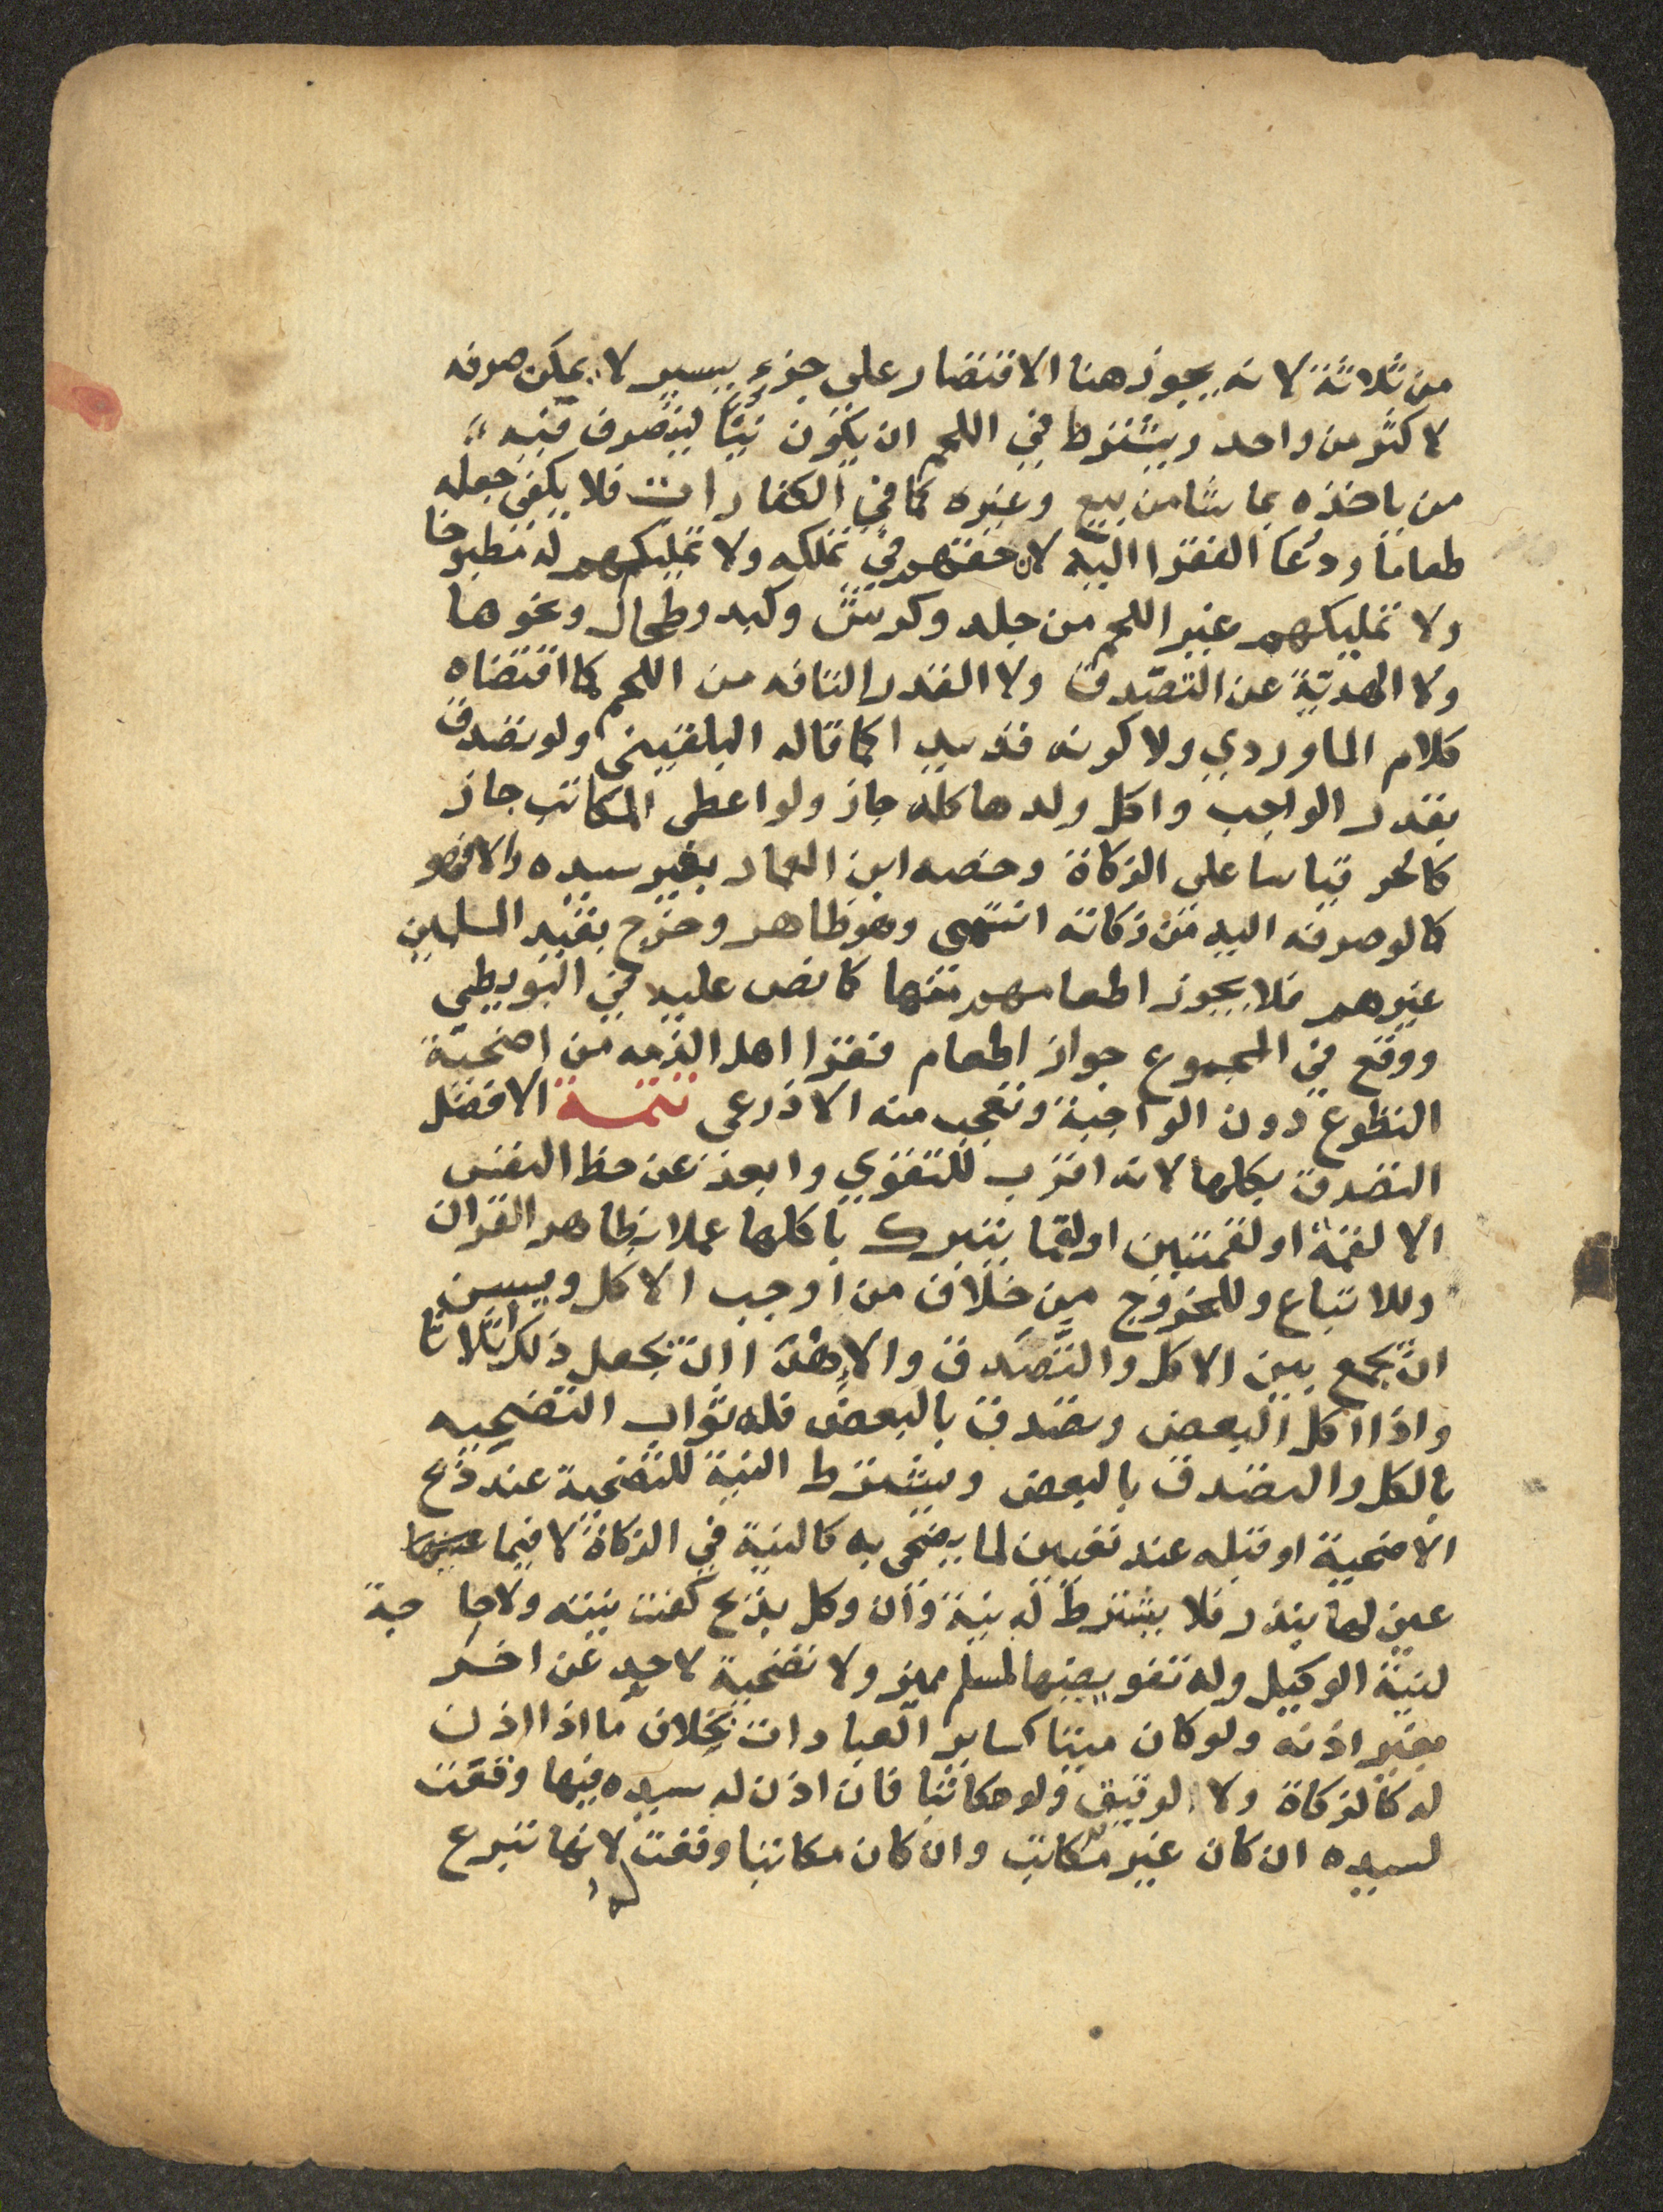 من ثلاثة لانه يجوز هنا الاقتصار على جزء يسير لا يمكن صرفه
لاكثر من واحد ويشترط في اللحم ان يكون نيئا ليتصرف فيه
من ياخذه بما شا من بيع وغيره كما في الكفارات فلا يكفي جعله
طعاما ودعا الفقرا اليه لان حقهم في تملكه ولا تمليكهم له مطبوخا
ولا تمليكهم غير اللحم من جلد وكرش وكبد وطحال ونحوها
ولا الهدية عن التصدق ولا القدر التافه من اللحم كما اقتضاه
كلام الماوردي ولا كونه قديدا كما قاله البلقيني ولو تصدق
بقدر الواجب واكل ولدها كله جاز ولو اعطى المكاتب جاز
كالحر قياسا على الزكاة وخصه ابن العماد بغير سيده والا فهو
كما لو صرفه اليه من زكاته انتهى وهو ظاهر وخرج بقيد المسلمين
غيرهم فلا يجوز اطعامهم منها كما نص عليه في البويطي
ووقع في المجموع جواز اطعام فقرا اهل الذمه من اضحية
التطوع دون الواجبة وتعجب منه الاذرعي تتمة الافضل
التصدق بكلها لانه اقرب للتقوي وابعد عن حظ النفس
الا لقمة او لقمتين او لقما يتبرك باكلها عملا بظاهر القران
وللاتباع وللخروج من خلاف من اوجب الاكل ويسن
ان يجمع بين الاكل والتصدق والاهدا ان يجعل ذلك اثلاثا
واذا اكل البعض وتصدق بالبعض فله ثواب التضحيه
بالكل والتصدق بالبعض ويشترط النية للتضحية عند ذبح
الاضحية او قبله عند تعيين لما يضحى به كالنية في الزكاة لا فيما
عين لها بنذر فلا يشترط له نية وان وكل بذبح كفت نيته ولا حاجة
لنية الوكيل وله تفويضها لمسلم مميز ولا تضحية لاحد عن اخر
بغير اذنه ولو كان ميتا كساير العبادات بخلاف ما اذا اذن
له كالزكاة ولا لرقيق ولو مكاتبا فان اذن له سيده فيها وقعت
لسيده ان كان غير مكاتب وان كان مكاتبا وقعت له لانها تبرع